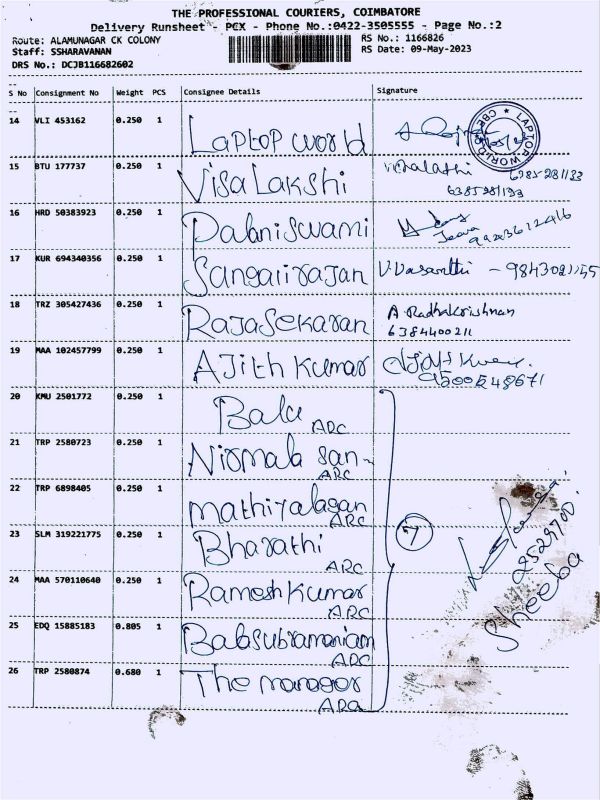 THE PROFESSIONAL COURIERS, COIMBATORE
Delivery Runsheet - PCX - Phone No.:0422-3505555 - Page No.:2
Route: ALAMUNAGAR CK COLONY RS No.: 1166826
Staff: SSHARAVANAN RS Date: 09-May-2023
DRS No.: DCJB116682602
S No Consignment No Weight PCS Consignee Details Signature
14 VLI 453162 0.250 1 Laptop world
LAPTOP WORLD CBE
15 BTU 177737 0.250 1 Visa Lakshi
6385281133
16 HRD 50383923 0.250 1 Palaniswami
17 KUR 694340356 0.250 1 Sangarirajan V.Vasanthi - 9843021155
18 TRZ 305427436 0.250 1 RajaSekaran A Radhakrishnan
6384400211
19 MAA 102457799 0.250 1 Ajith Kumar
9500548671
20 KMU 2501772 0.250 1 Balu ARC
21 TRP 2580723 0.250 1 Nirmala san- ARC
22 TRP 6898405 0.250 1 mathiyalagan ARC
23 SLM 319221775 0.250 1 Bharathi ARC
7
24 MAA 570110640 0.250 1 Ramesh Kumar ARC
Sheeba
25 EDQ 15885183 0.805 1 Balasubramaniam ARC
26 TRP 2580874 0.680 1 The manager ARC